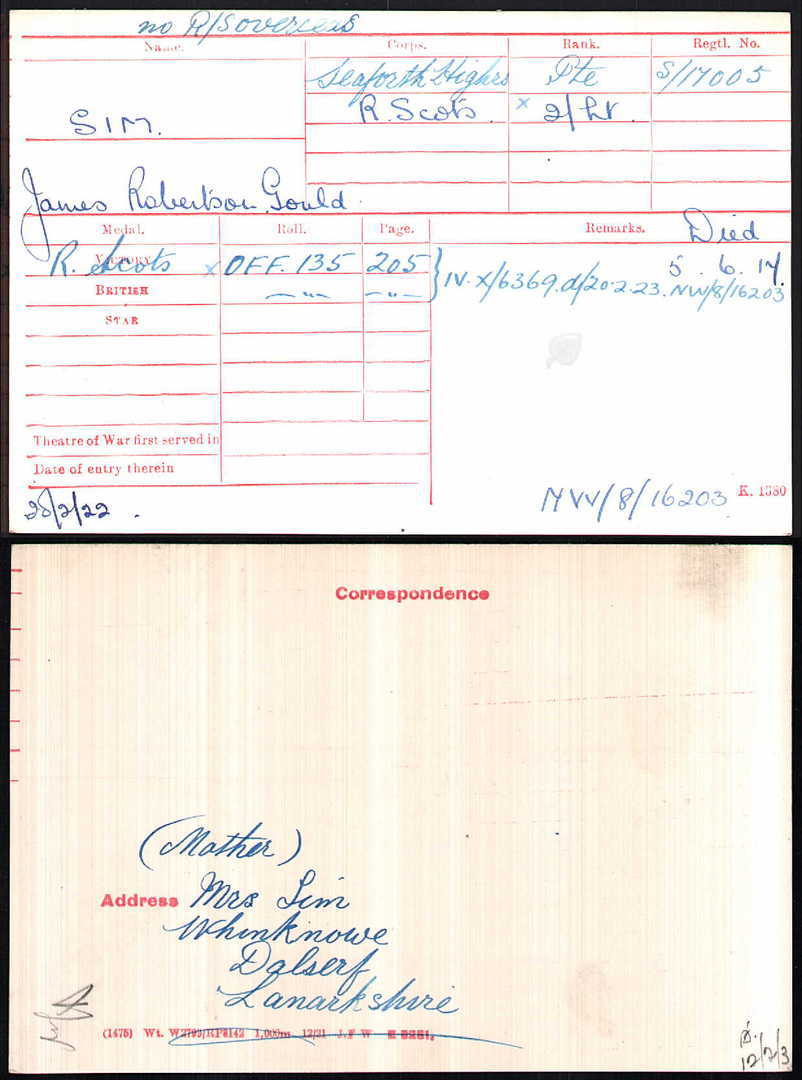 no R/S overseas
Name. Corps. Rank. Regtl. No.
Seaforth Highrs Pte S/17005
SIM. R. Scots. x 2/Lt.
James Robertson Gould.
Medal. Roll. Page. Remarks.
Died
VICTORY R. Scots x OFF. 135 205 5.6.17.
BRITISH —"— —"— } IV. X/6369.d/20.2.23. NW/8/16203
STAR
Theatre of War first served in
Date of entry therein
28/2/22. NW/8/16203 K. 1380
Correspondence
(Mother)
Address Mrs Sim
Whinknowe
Dalserf
Lanarkshire
(1475) Wt. W2793/RP6142 1,000m 12/21 J.F W
12/7/3